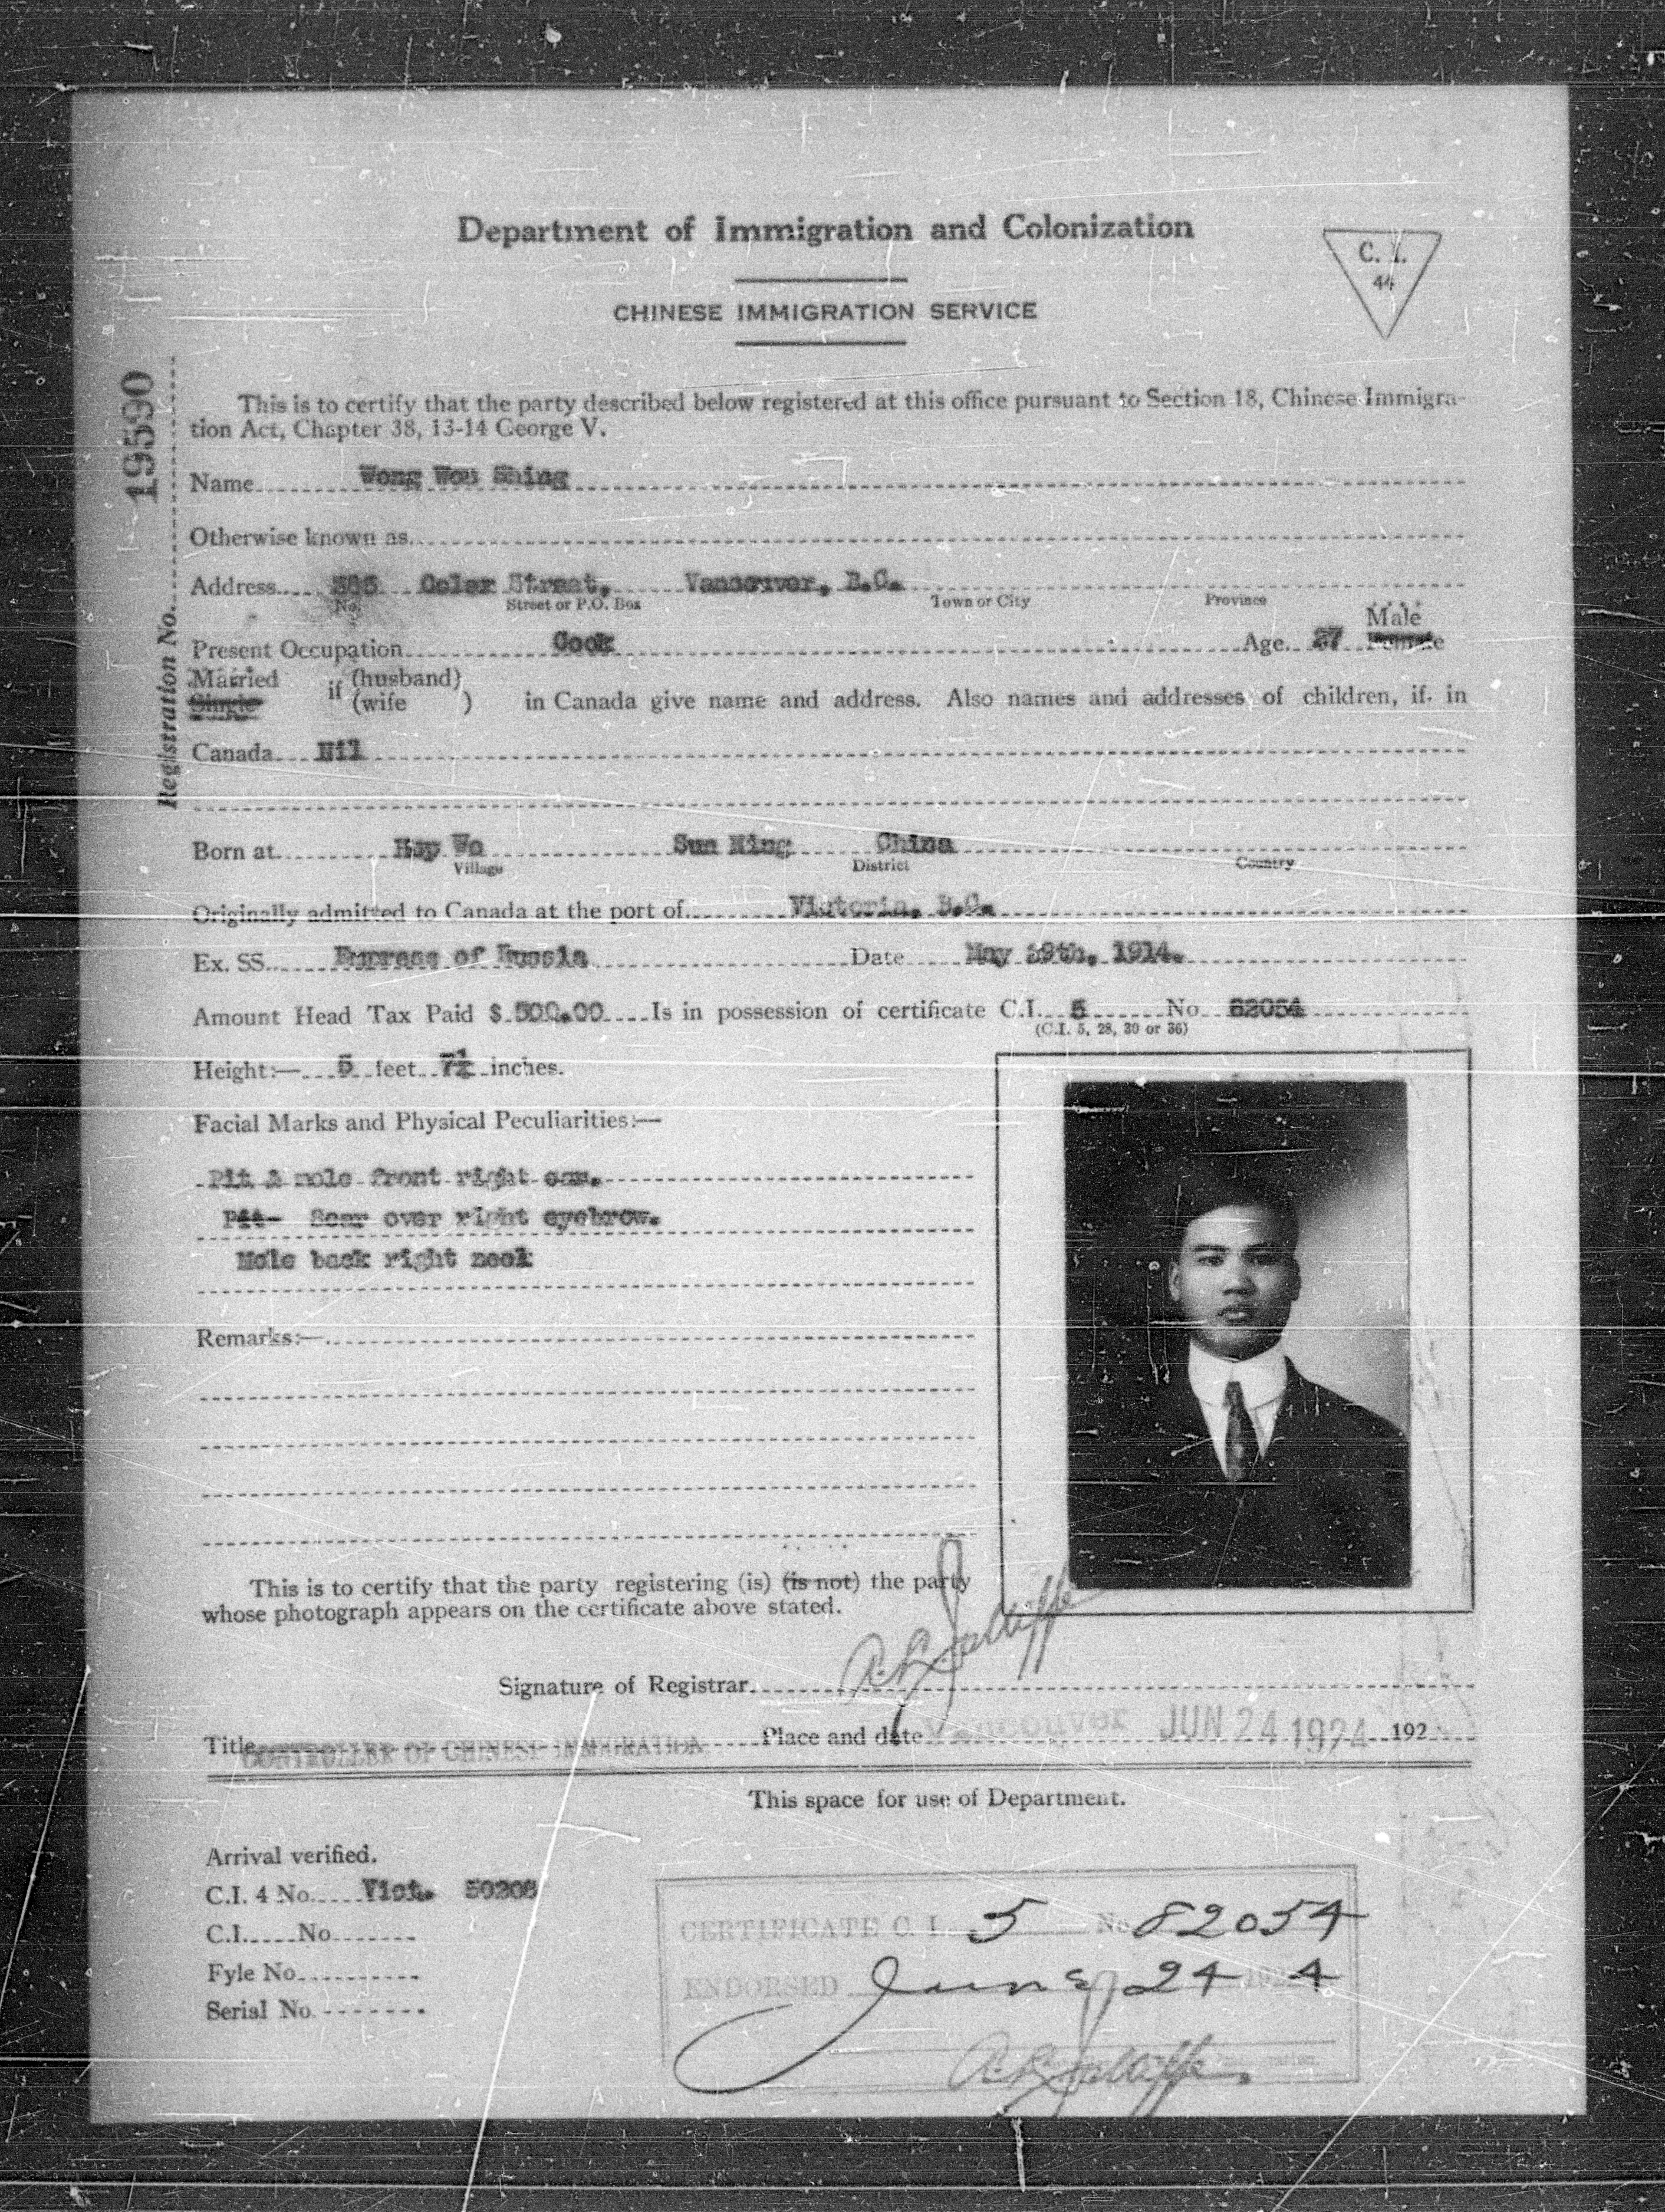 Department of Immigration and Colonization
C. I.
44
CHINESE IMMIGRATION SERVICE
Registration No. 19590
This is to certify that the party described below registered at this office pursuant to Section 18, Chinese Immigra-
tion Act, Chapter 38, 13-14 George V.
Name Wong Wou Shing
Otherwise known as
Address Street, Vancouver, B.C.
No. Street or P.O. Box Town or City Province
Male
Present Occupation Cook Age 27 Female
Married (husband)
Single if (wife ) in Canada give name and address. Also names and addresses of children, if in
Canada Nil
Born at Wo Sun Ning China
Village District Country
Originally admitted to Canada at the port of Victoria, B.C.
Ex. SS. Empress of Russia Date May 1914.
Amount Head Tax Paid $ 500.00 Is in possession of certificate C.I. 5 No 82054
(C.I. 5, 28, 30 or 36)
Height:— 5 feet 7½ inches.
Facial Marks and Physical Peculiarities:—
Pit & mole front right ear.
Pit- Scar over right eyebrow.
Mole back right neck
Remarks:—
This is to certify that the party registering (is) (is not) the party
whose photograph appears on the certificate above stated.
Signature of Registrar
Title CONTROLLER OF CHINESE IMMIGRATION Place and date Vancouver JUN 24 1924 192
This space for use of Department.
Arrival verified.
C.I. 4 No. Vict. 50208
C.I. No
Fyle No
Serial No
CERTIFICATE C. I. 5 No 82054
ENDORSED June 24 192 4